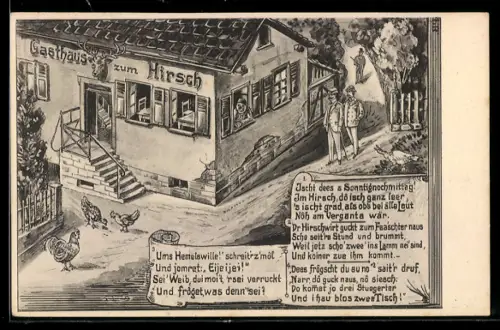 Gasthaus
zum Hirsch
Ischt dees a Sonntignochmitteg!
Im Hirsch, dô isch ganz leer
's ischt grad, als obs bei älle Laut
Nôh am Verganta wär.
Dr Hirschwirt guckt zum Feaschter naus
Scho seit're Stund and brummt,
Weil jetz scho' zwee' ins Lamm nei' sind,
Und koiner zue ihm kommt. —
„Dees frôgscht du au no'" sait'r druf,
„Narr, dô guck naus, nô siesch:
Do komet jo drei Stuegerter
Und i hau blos zwee Tisch!"
„Ums Hemelswille!' schreit z'môl
Und jomret: „Eijeijei!"
Sei' Weib, dui moit, 'r sei verruckt
Und frôget, was denn sei?